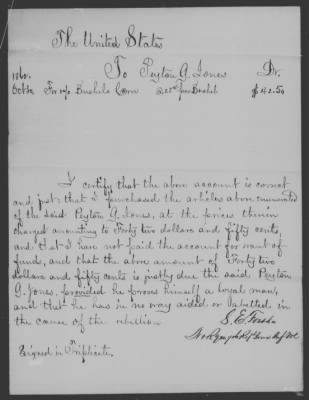 The United States
To Peyton G. Jones Dr.
186
Oct For 170 Bushels Corn @ 25 cts per Bushel $42.50
I certify that the above account is correct
and just; that I purchased the articles above enumerated
of the said Peyton G. Jones, at the prices therein
charged amounting to Forty two dollars and fifty cents,
and that I have not paid the account for want of
funds, and that the above amount of Forty two
dollars and fifty cents is justly due the said Peyton
G. Jones, provided he proves himself a loyal man,
and that he has in no way aided or abetted in
the cause of the rebellion.
S. E.
Signed in Triplicate.